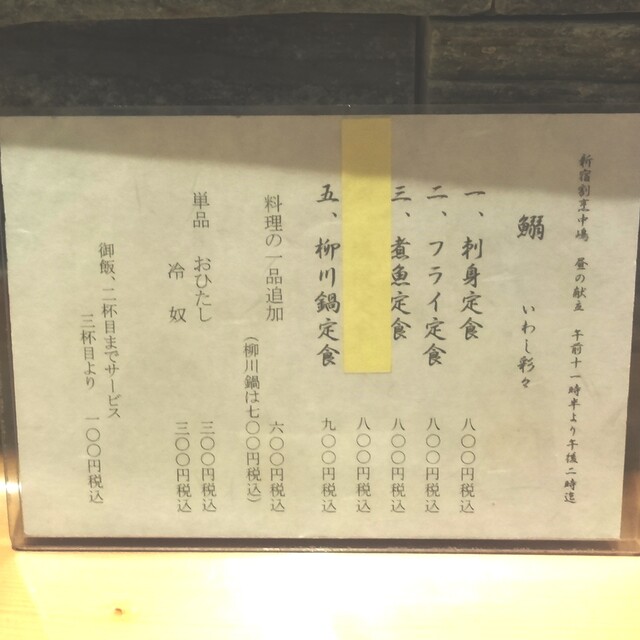 新宿割烹中嶋　昼の献立　午前十一時半より午後二時迄
鰯　いわし彩々
一、刺身定食　八〇〇円税込
二、フライ定食　八〇〇円税込
三、煮魚定食　八〇〇円税込
八〇〇円税込
五、柳川鍋定食　九〇〇円税込
料理の一品追加　六〇〇円税込
（柳川鍋は七〇〇円税込）
単品　おひたし　三〇〇円税込
冷奴　三〇〇円税込
御飯、二杯目までサービス
三杯目より　一〇〇円税込